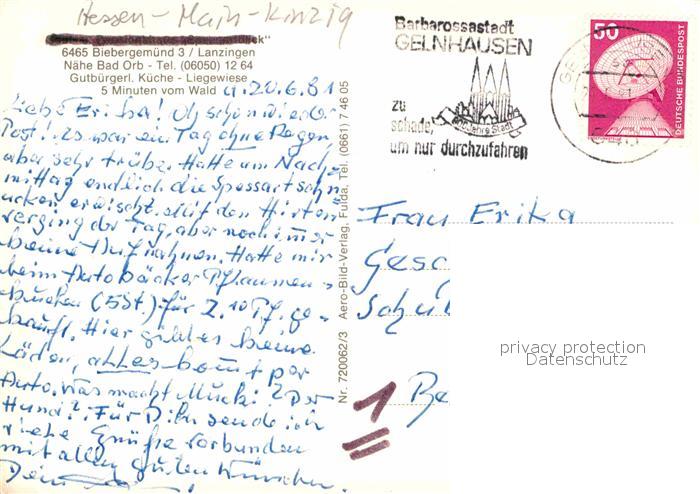 Hessen - Main-Kinzig
6465 Biebergemünd 3 / Lanzingen
Nähe Bad Orb - Tel. (06050) 12 64
Gutbürgerl. Küche - Liegewiese
5 Minuten vom Wald
d. 20.6.81
Liebe Erika! Ob schon wieder
Post! Es war ein Tag ohne Regen,
aber sehr trübe. Hatte am Nach-
mittag endlich die Spessart
erwischt. Mit den Hirten
verging der Tag, aber noch immer
keine Aufnahmen. Hatte mir
beim Autobäcker Pflaumen-
kuchen (5St.) für 2.10 Pf. ge-
kauft. Hier gibt es keine
Läden, alles kommt per
Auto. Was macht Mucki? Der
Hund? Für Dich sende ich
liebe Grüße verbunden
mit allen guten Wünschen.
Dein
Nr. 720062/3 Aero-Bild-Verlag, Fulda, Tel. (0661) 7 46 05
Barbarossastadt
GELNHAUSEN
zu
schade,
um nur durchzufahren
Jahre Stadt
50
DEUTSCHE BUNDESPOST
Frau Erika
Gesc
Schul
1 Be
privacy protection
Datenschutz